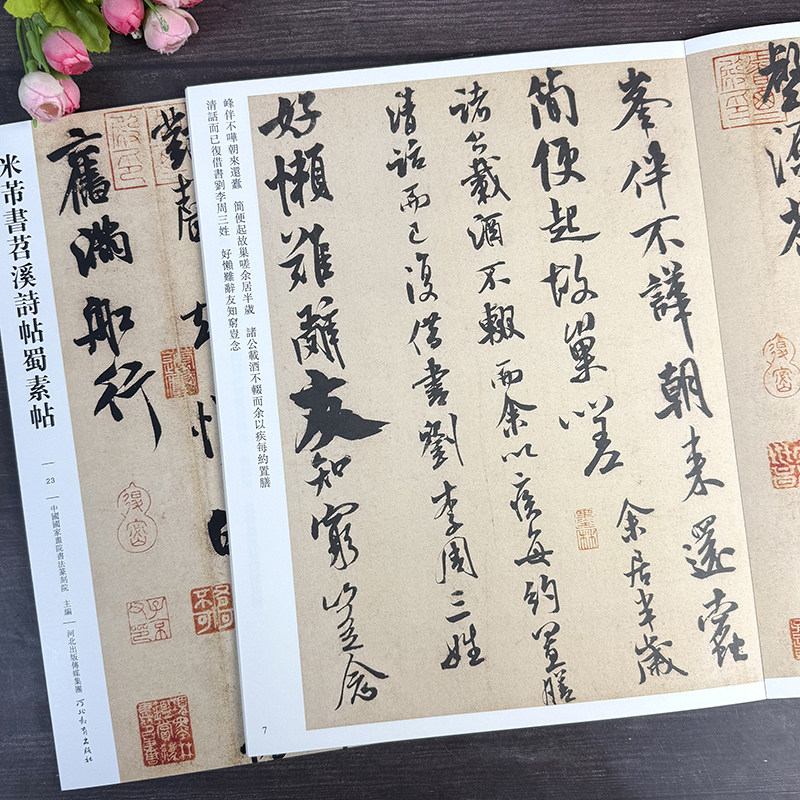 壑源茶
峯伴不譁朝來還蠹
簡便起故巢嗟
余居半歲
諸公載酒不輟而余以疾每約置膳
清話而已復借書劉李周三姓
好懶難辭友知窮豈念
峰伴不嘩朝來還蠹　簡便起故巢嗟余居半歲　諸公載酒不輟而余以疾每約置膳
清話而已復借書劉李周三姓　好懶難辭友知窮豈念
7
舊滿船行
米芾書苕溪詩帖蜀素帖
23
中國國家畫院書法篆刻院　主編
河北出版傳媒集團　河北教育出版社